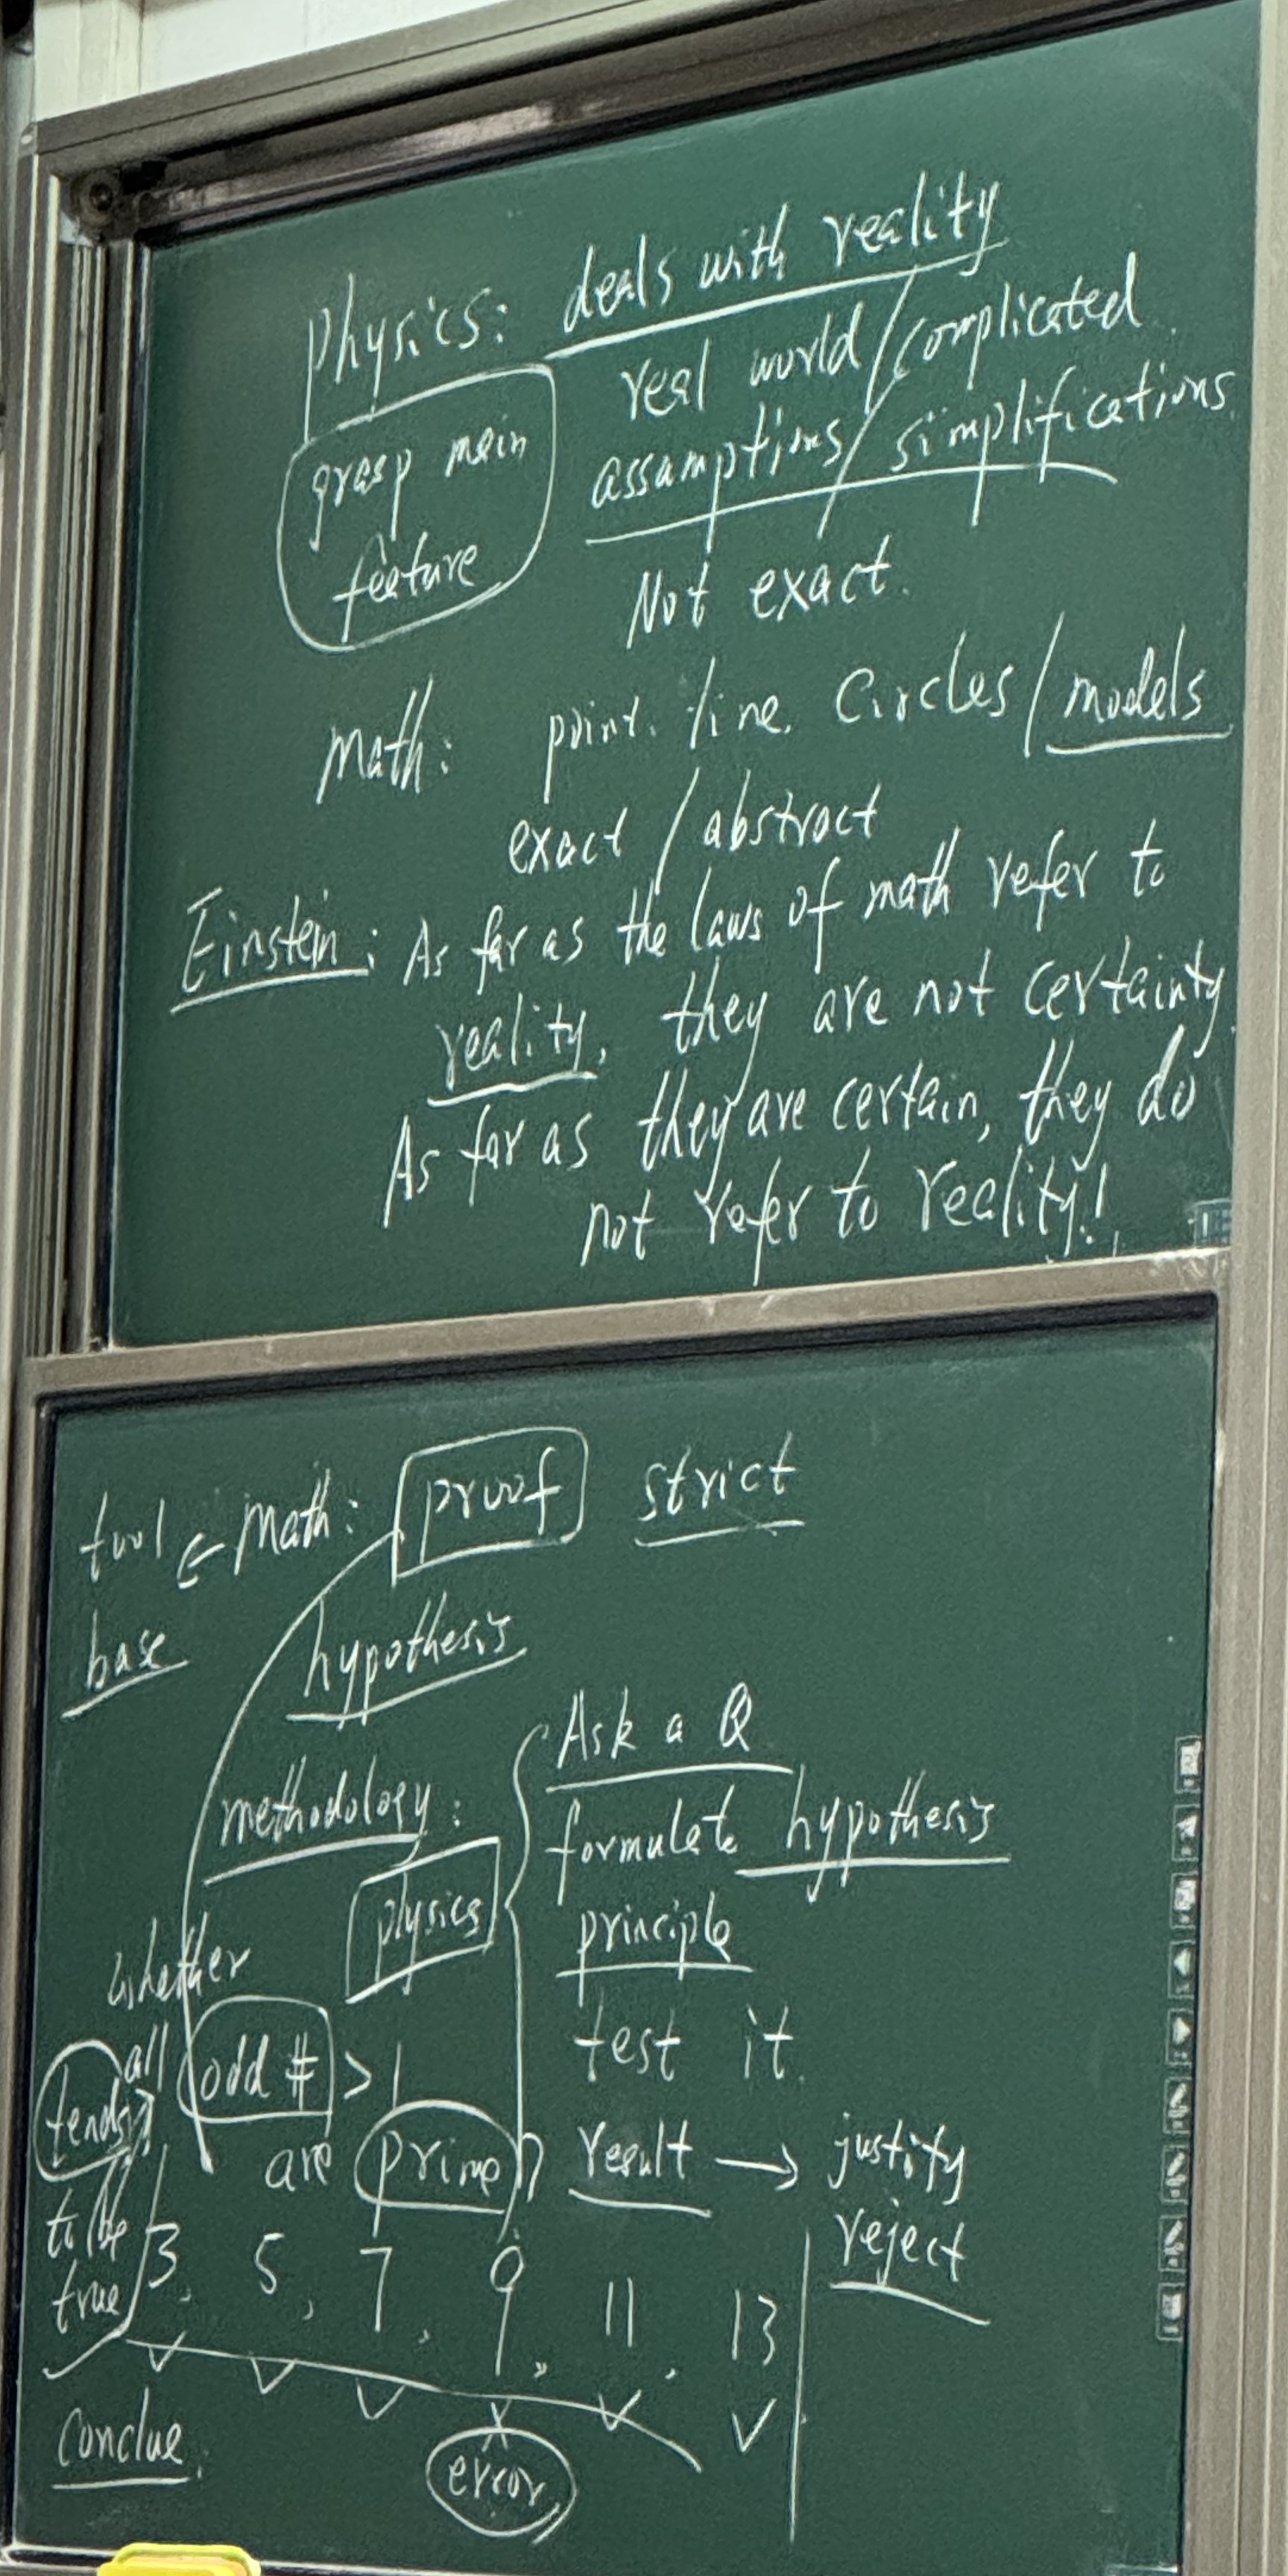 Physics: deals with reality
real world / complicated
grasp main
assumptions / simplifications.
feature
Not exact.
Math: point. line. Circles / models
exact / abstract
Einstein: As far as the laws of math refer to
reality, they are not certainty.
As far as they are certain, they do
not refer to reality!
tool ← Math: proof strict
base
hypothesis
methodology:
physics
Ask a Q
formulate hypothesis
principle
test it.
result → justify
reject
whether
all odd # > 1
are prime
tends
to be
true
3, 5, 7, 9, 11, 13
✓ ✓ ✓ x ✓ ✓
error
Conclue.